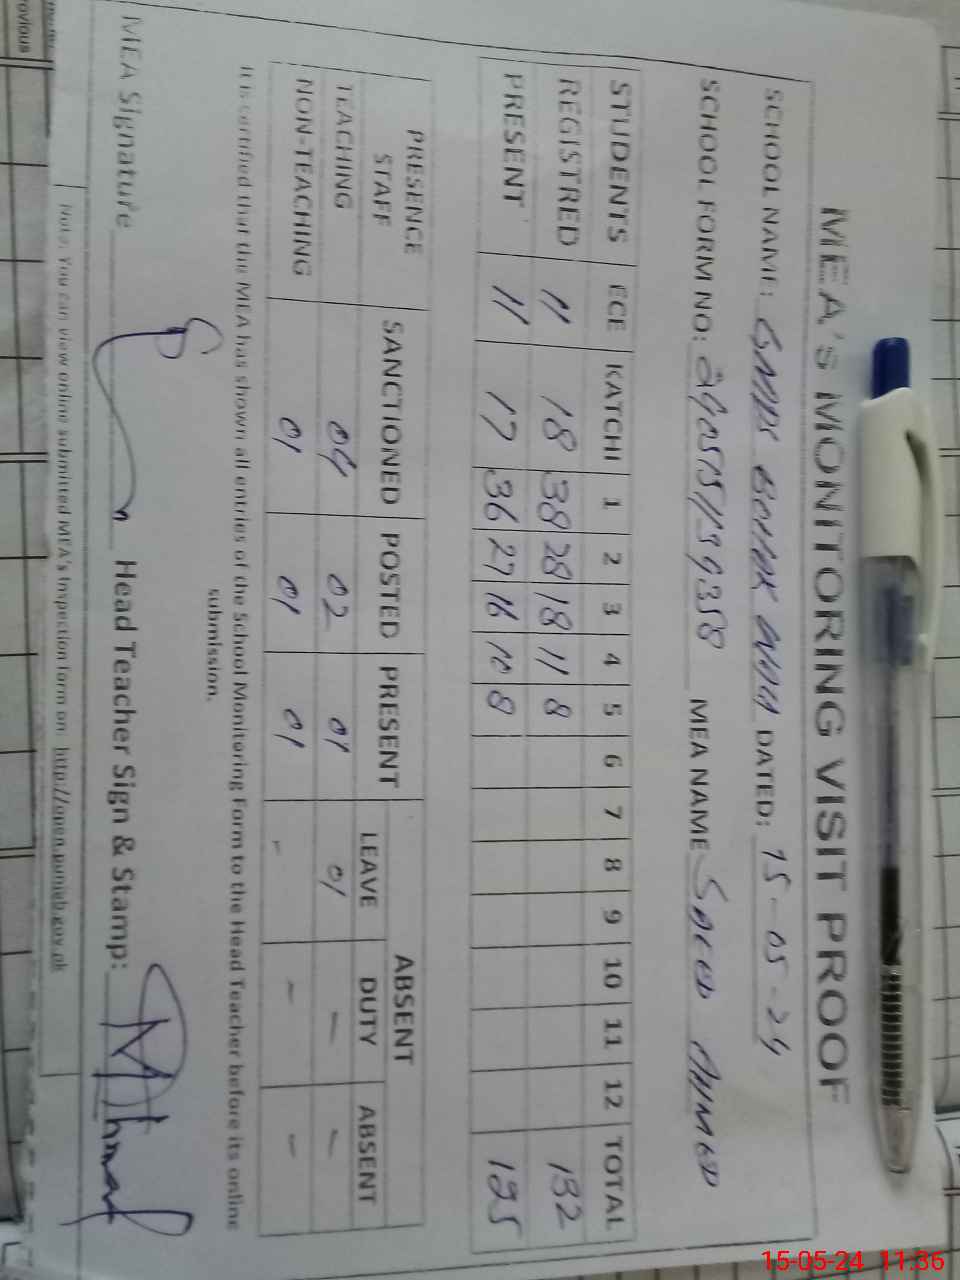 MEA's MONITORING VISIT PROOF
SCHOOL NAME: GMPS DATED: 15-05-24
SCHOOL FORM NO: MEA NAME Saeed Ahmed
STUDENTS ECE KATCHI 1 2 3 4 5 6 7 8 9 10 11 12 TOTAL
REGISTRED 11 18 38 28 18 11 8 132
PRESENT 11 17 36 27 16 10 8 125
PRESENCE STAFF SANCTIONED POSTED PRESENT ABSENT
LEAVE DUTY ABSENT
TEACHING 04 02 01 01 - -
NON-TEACHING 01 01 01 - - -
It is certified that the MEA has shown all entries of the School Monitoring Form to the Head Teacher before its online
submission.
MEA Signature Head Teacher Sign & Stamp:
Note: You can view online submitted MEA's Inspection form on http://open.punjab.gov.pk
rovious
15-05-24 11:36